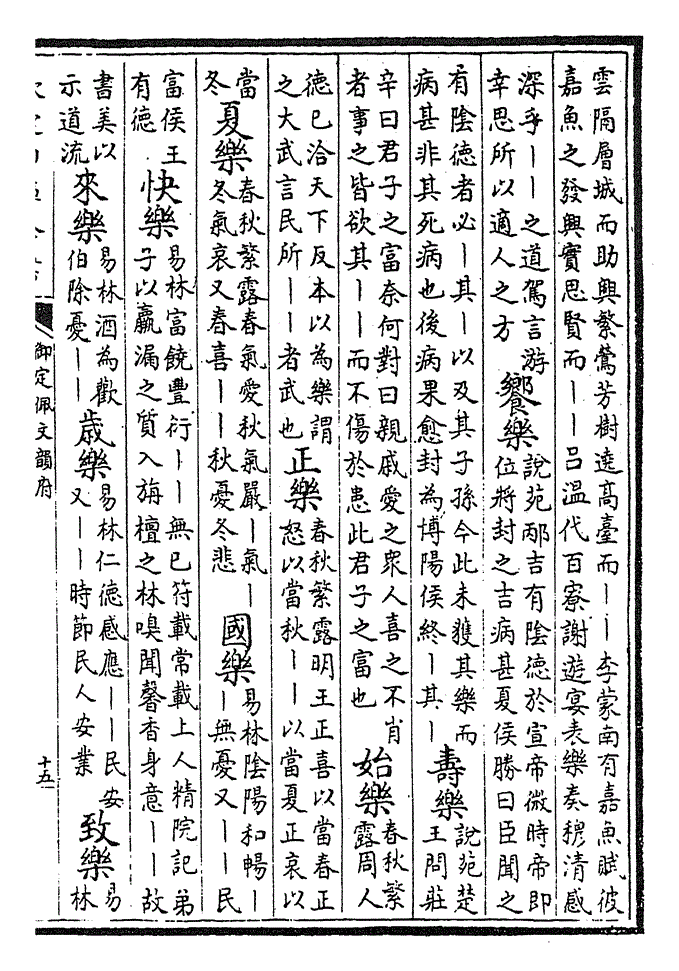 雲隔層城而助興繁鶯芳樹遶高臺而丨丨李蒙南有嘉魚賦彼
嘉魚之發興實思賢而丨丨呂溫代百寮謝遊宴表樂奏穆清感
深乎丨丨之道駕言游
幸思所以適人之方
饗樂
說苑邴吉有陰德於宣帝微時帝即
位將封之吉病甚夏侯勝曰臣聞之
有陰德者必丨其丨以及其子孫今此未獲其樂而
病甚非其死病也後病果愈封為博陽侯終丨其丨
壽樂
說苑楚
王問莊
辛曰君子之富奈何對曰親戚愛之衆人喜之不肖
者事之皆欲其丨丨而不傷於患此君子之富也
始樂
春秋繁
露周人
德已洽天下反本以為樂謂
之大武言民所丨丨者武也
正樂
春秋繁露明王正喜以當春正
怒以當秋丨丨以當夏正哀以
當
冬
夏樂
春秋繁露春氣愛秋氣嚴丨氣丨
冬氣哀又春喜丨丨秋憂冬悲
國樂
易林陰陽和暢丨
丨無憂又丨丨民
富侯王
有德
快樂
易林富饒豐衍丨丨無已符載常載上人精院記弟
子以羸漏之質入旃檀之林嗅聞馨香身意丨丨故
書美以
示道流
來樂
易林酒為歡
伯除憂丨丨
歲樂
易林仁德感應丨丨民安
又丨丨時節民人安業
致樂
易
林
御定佩文韻府
十五